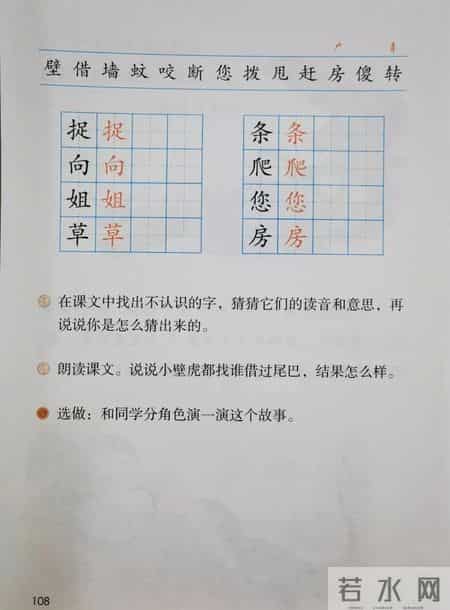 ⺁ 车
壁 借 墙 蚊 咬 断 您 拨 甩 赶 房 傻 转
捉 捉 条 条
向 向 爬 爬
姐 姐 您 您
草 草 房 房
在课文中找出不认识的字，猜猜它们的读音和意思，再
说说你是怎么猜出来的。
朗读课文。说说小壁虎都找谁借过尾巴，结果怎么样。
选做：和同学分角色演一演这个故事。
108
若水网